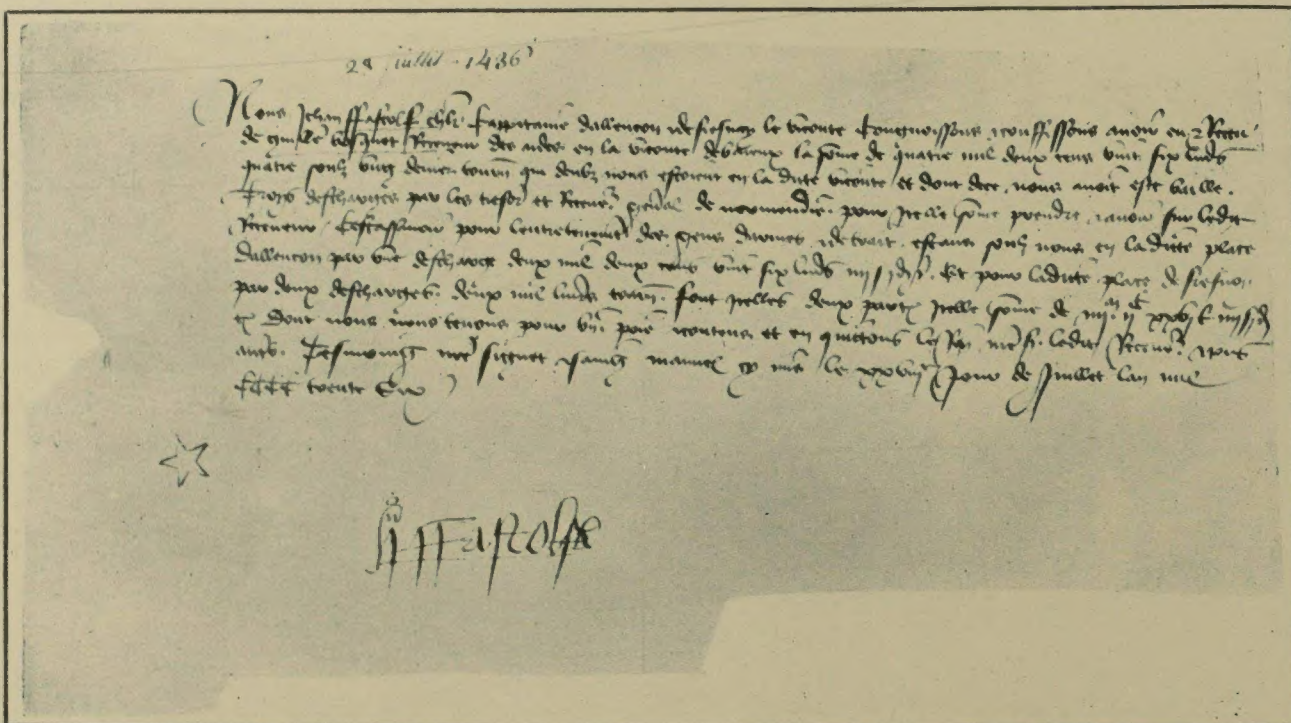 28 juillet 1436
Nous Jehan ffastolf chlr Cappitaine dallencon et de fresnay le viconte Congnoissons et confessons avoir eu et Receu
de Receveur des aides en la viconte la some de quatre mil deux cens vint six livres
quatre soulz ung denier tourn qui deubz nous estoient en la dicte viconte et dont dece nous avoit este baille
Trois descharges par les tresor et Recev general de normendie pour icelle some prendre et avoir sur ledit
Receveur Cestassavoir pour lentretenement des gens darmes et de trait estans soubz nous en ladicte place
dallencon par une descharge deux mil deux cens vint six livres iiij s j d t Et pour ladicte place de fresnay
par deux descharges deux mil livres tourn font icelles deux parties icelle some de iiij m ij c xxvj l iiij s j d
t Dont nous nous tenons pour bien et contens et en quictons le Roy nre s ledit Recev et tous
autres Tesmoing nre signet et saing manuel cy mis le xxviij Jour de Juillet lan mil
CCCC trente Six
ffastolf